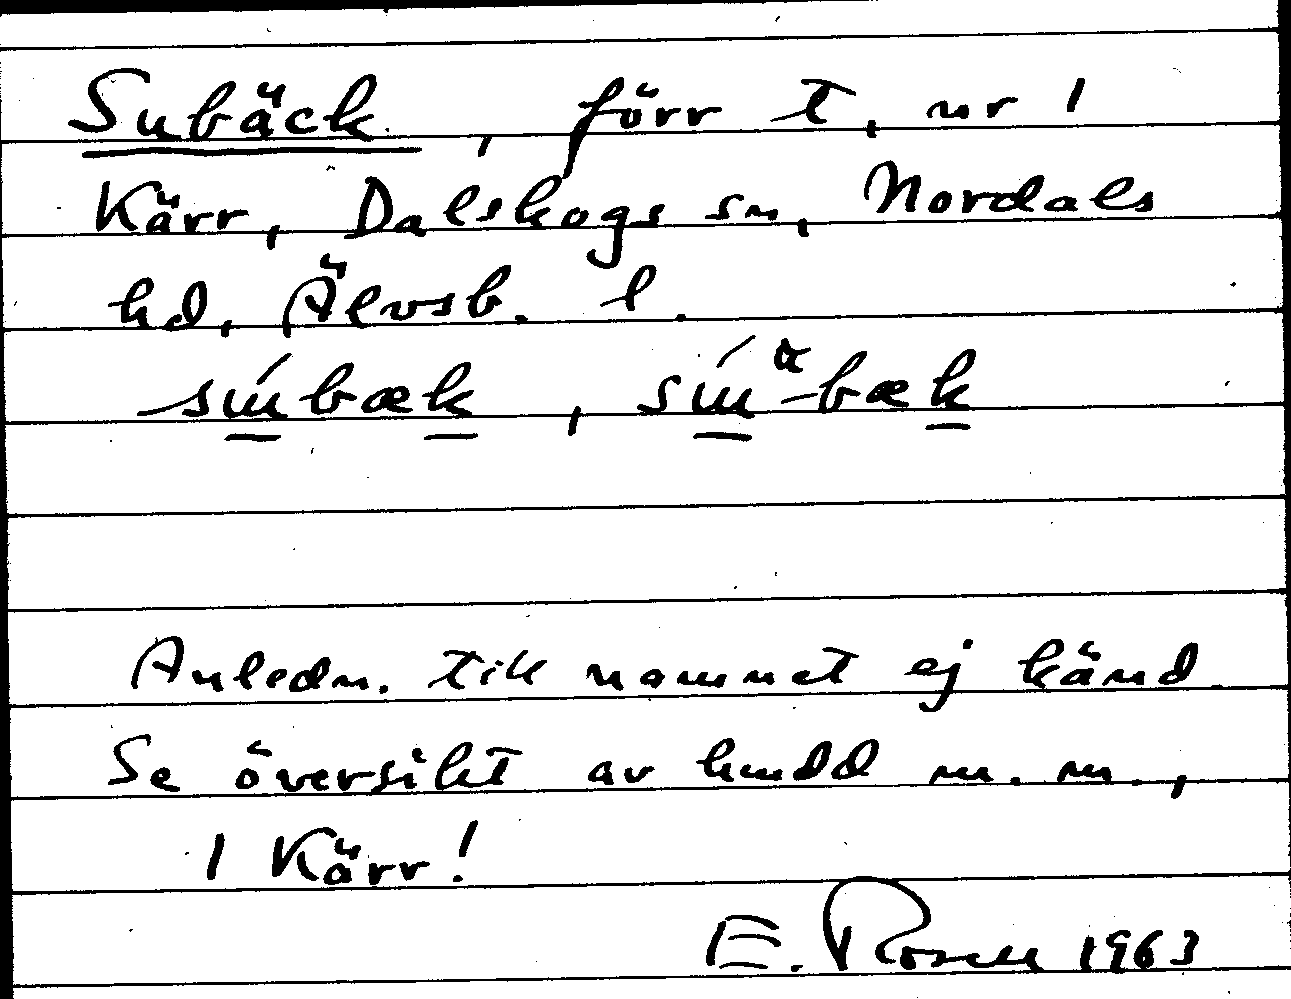 Subäck, förr t, nr 1
Kärr, Dalskogs sn, Nordals
hd, Älvsb. l.
súbæk, súᵅ-bæk
Anledn. till namnet ej känd
Se översikt av hmdd m. m.,
1 Kärr!
E. Rosell 1963